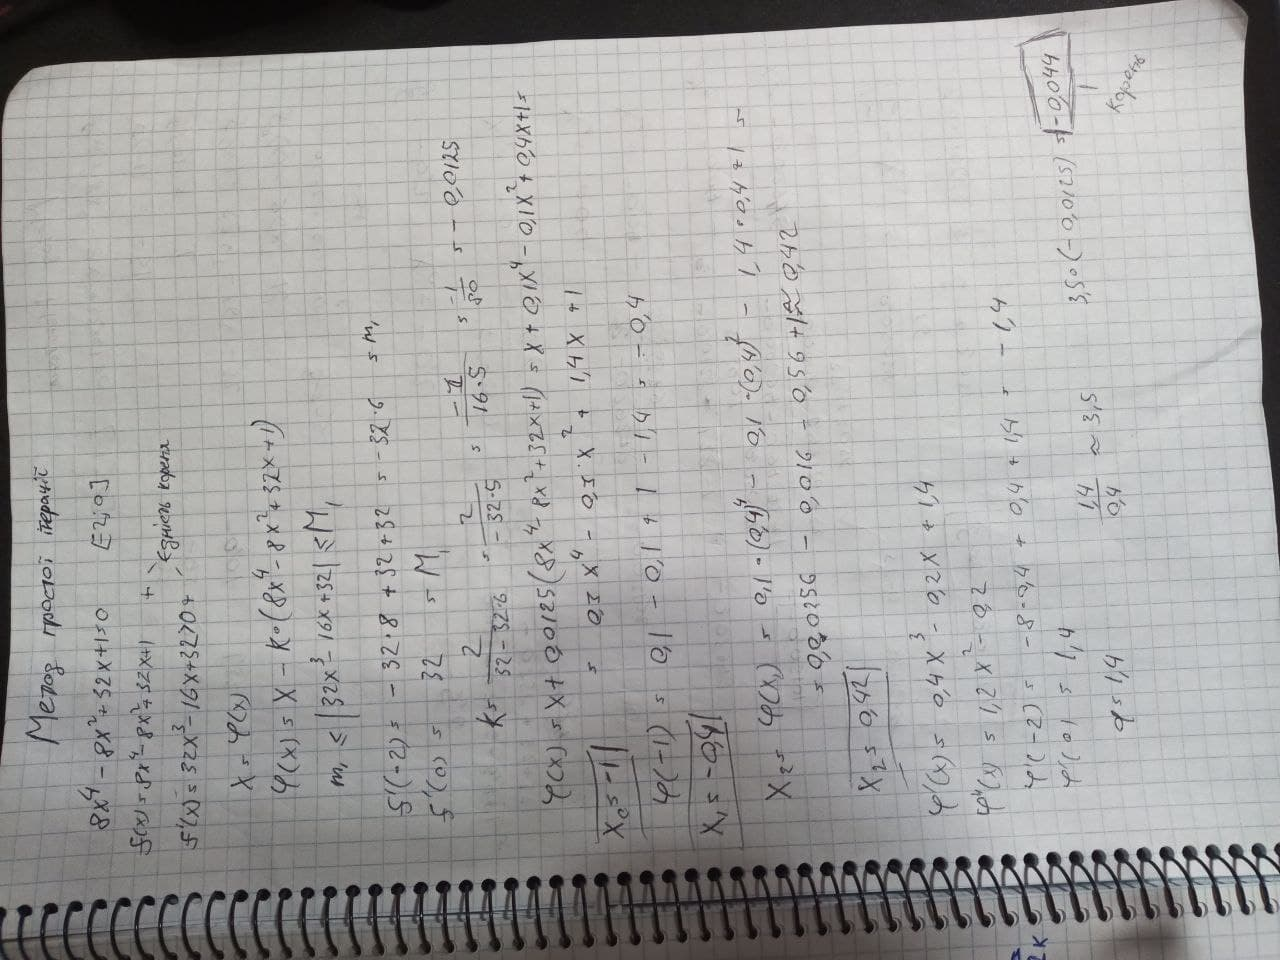 Метод простої ітерації
8x⁴ - 8x² + 32x + 1 = 0 [-2; 0]
f(x) = 8x⁴ - 8x² + 32x + 1 +
f'(x) = 32x³ - 16x + 32 > 0 + > Єдність кореня
x = φ(x)
φ(x) = x - k·(8x⁴ - 8x² + 32x + 1)
m₁ ≤ |32x³ - 16x + 32| ≤ M₁
f'(-2) = -32·8 + 32 + 32 = -32·6 = m₁
f'(0) = 32 = M₁
k = 2/(32 - 32·6) = 2/(-32·5) = -1/(16·5) = -1/80 = -0,0125
φ(x) = x + 0,0125(8x⁴ - 8x² + 32x + 1) = x + 0,1x⁴ - 0,1x² + 0,4x + 1 =
= 0,1x⁴ - 0,1x² + 1,4x + 1
x₀ = -1
φ(-1) = 0,1 - 0,1 + 1 - 1,4 = -0,4
x₁ = -0,4
x₂ = φ(x₁) = 0,1·(0,4)⁴ - 0,1·(0,4)² - 1,4·0,4 + 1 =
= 0,00256 - 0,016 - 0,56 + 1 ≈ 0,42
x₂ = 0,42
φ'(x) = 0,4x³ - 0,2x + 1,4
φ''(x) = 1,2x² - 0,2
φ'(-2) = -8·0,4 + 0,4 + 1,4 = -1,4
φ'(0) = 1,4
q = 1,4 1,4/0,4 ≈ 3,5 3,5·(-0,0125) = -0,044
корень
2к